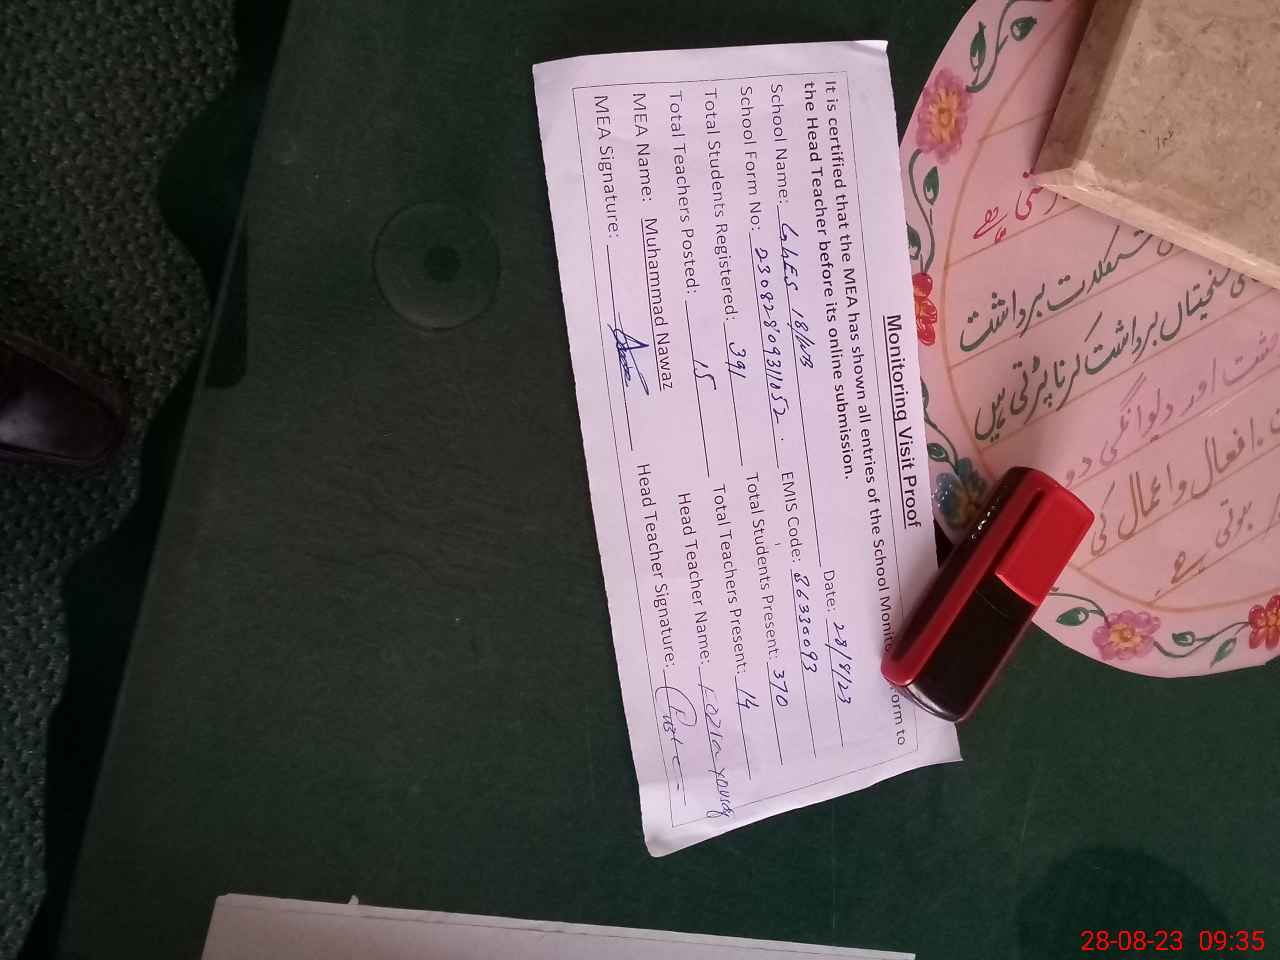 Monitoring Visit Proof
It is certified that the MEA has shown all entries of the School Monito orm to
the Head Teacher before its online submission.
School Name: GGES 18/WB Date: 28/8/23
School Form No: 23082809311052 EMIS Code: 86330093
Total Students Registered: 391 Total Students Present: 370
Total Teachers Posted: 15 Total Teachers Present: 14
MEA Name: Muhammad Nawaz Head Teacher Name: Fozia Yousaf
MEA Signature: Head Teacher Signature:
مشکلات برداشت
سختیاں برداشت کرنا پڑتی ہیں
اور دیوانگی دو
افعال و اعمال کی
ہوتی ہے
28-08-23 09:35